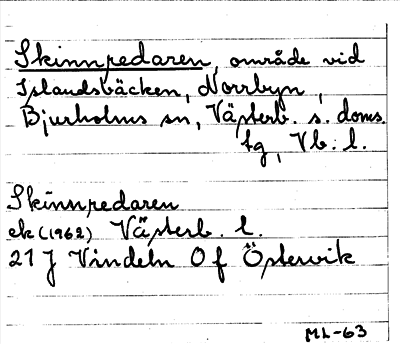 Skinnpedaren, område vid
Islandsbäcken, Norrbyn,
Bjurholms sn, Västerb. s. doms.
tg, Vb. l.
Skinnpedaren
ek (1962) Västerb. l.
21 J Vindeln 0 f Östervik
ML-63